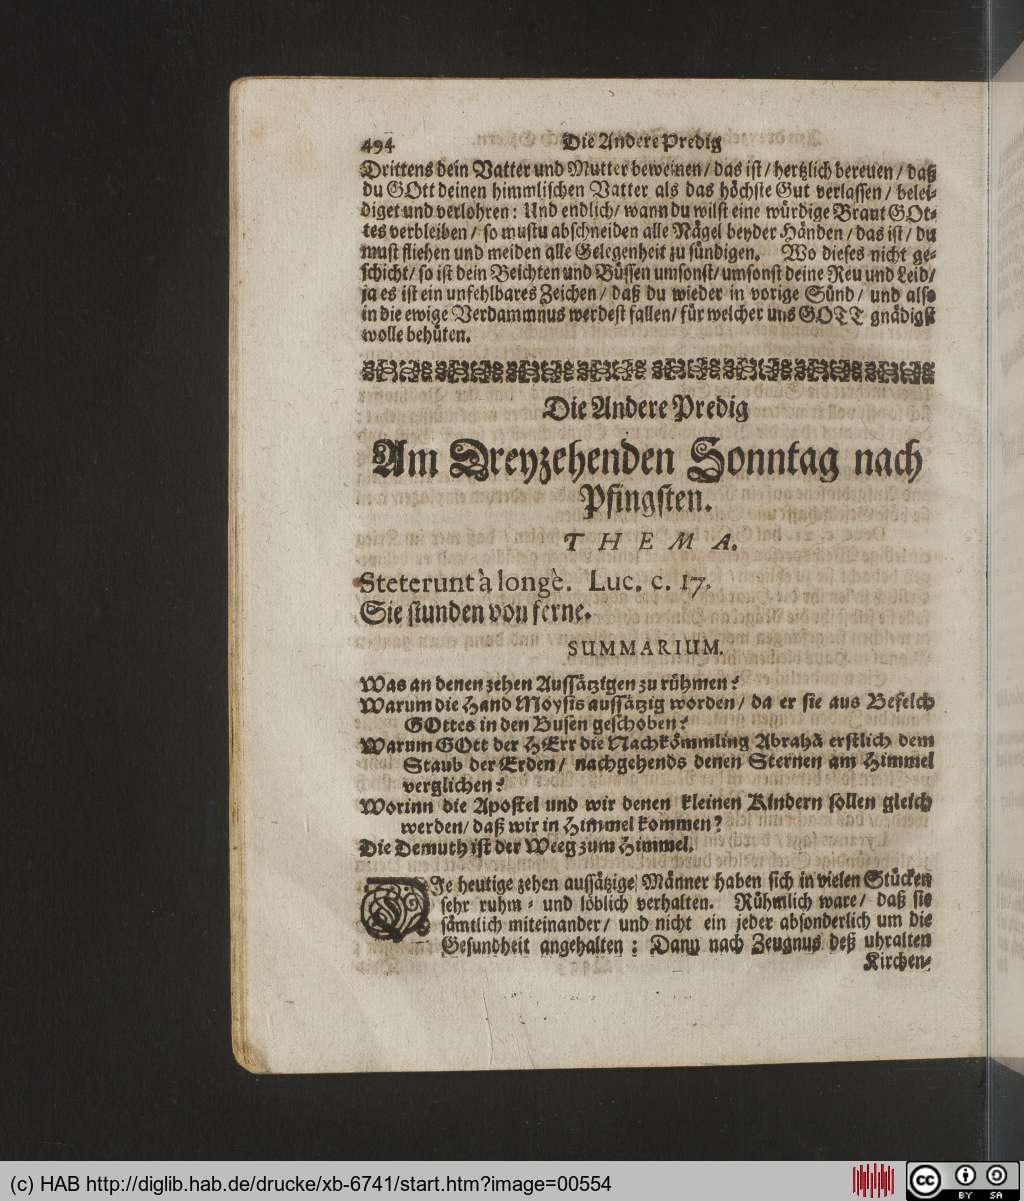 494 Die Andere Predig
Drittens dein Vatter und Mutter beweinen / das ist / hertzlich bereuen / daß
du GOtt deinen himmlischen Vatter als das höchste Gut verlassen / belei-
diget und verlohren: Und endlich / wann du wilst eine würdige Braut GOt-
tes verbleiben / so mustu abschneiden alle Nägel beyder Händen / das ist / du
must fliehen und meiden alle Gelegenheit zu sündigen. Wo dieses nicht ge-
schicht / so ist dein Beichten und Büssen umsonst / umsonst deine Reu und Leid /
ja es ist ein unfehlbares Zeichen / daß du wieder in vorige Sünd / und also
in die ewige Verdammnus werdest fallen / für welcher uns GOTT gnädigst
wolle behüten.
Die Andere Predig
Am Dreyzehenden Sonntag nach
Pfingsten.
THEMA.
Steterunt à longè. Luc. c. 17.
Sie stunden von ferne.
SUMMARIUM.
Was an denen zehen Aussätzigen zu rühmen?
Warum die Hand Moysis aussätzig worden / da er sie aus Befelch
GOttes in den Busen geschoben?
Warum GOtt der HErr die Nachkömmling Abrahã erstlich dem
Staub der Erden / nachgehends denen Sternen am Himmel
verglichen?
Worinn die Apostel und wir denen kleinen Kindern sollen gleich
werden / daß wir in Himmel kommen?
Die Demuth ist der Weeg zum Himmel.
DIe heutige zehen aussätzige Männer haben sich in vielen Stücken
sehr ruhm- und löblich verhalten. Rühmlich ware / daß sie
sämtlich miteinander / und nicht ein jeder absonderlich um die
Gesundheit angehalten: Dann nach Zeugnus deß uhralten
Kirchen-
(c) HAB http://diglib.hab.de/drucke/xb-6741/start.htm?image=00554
cc BY SA